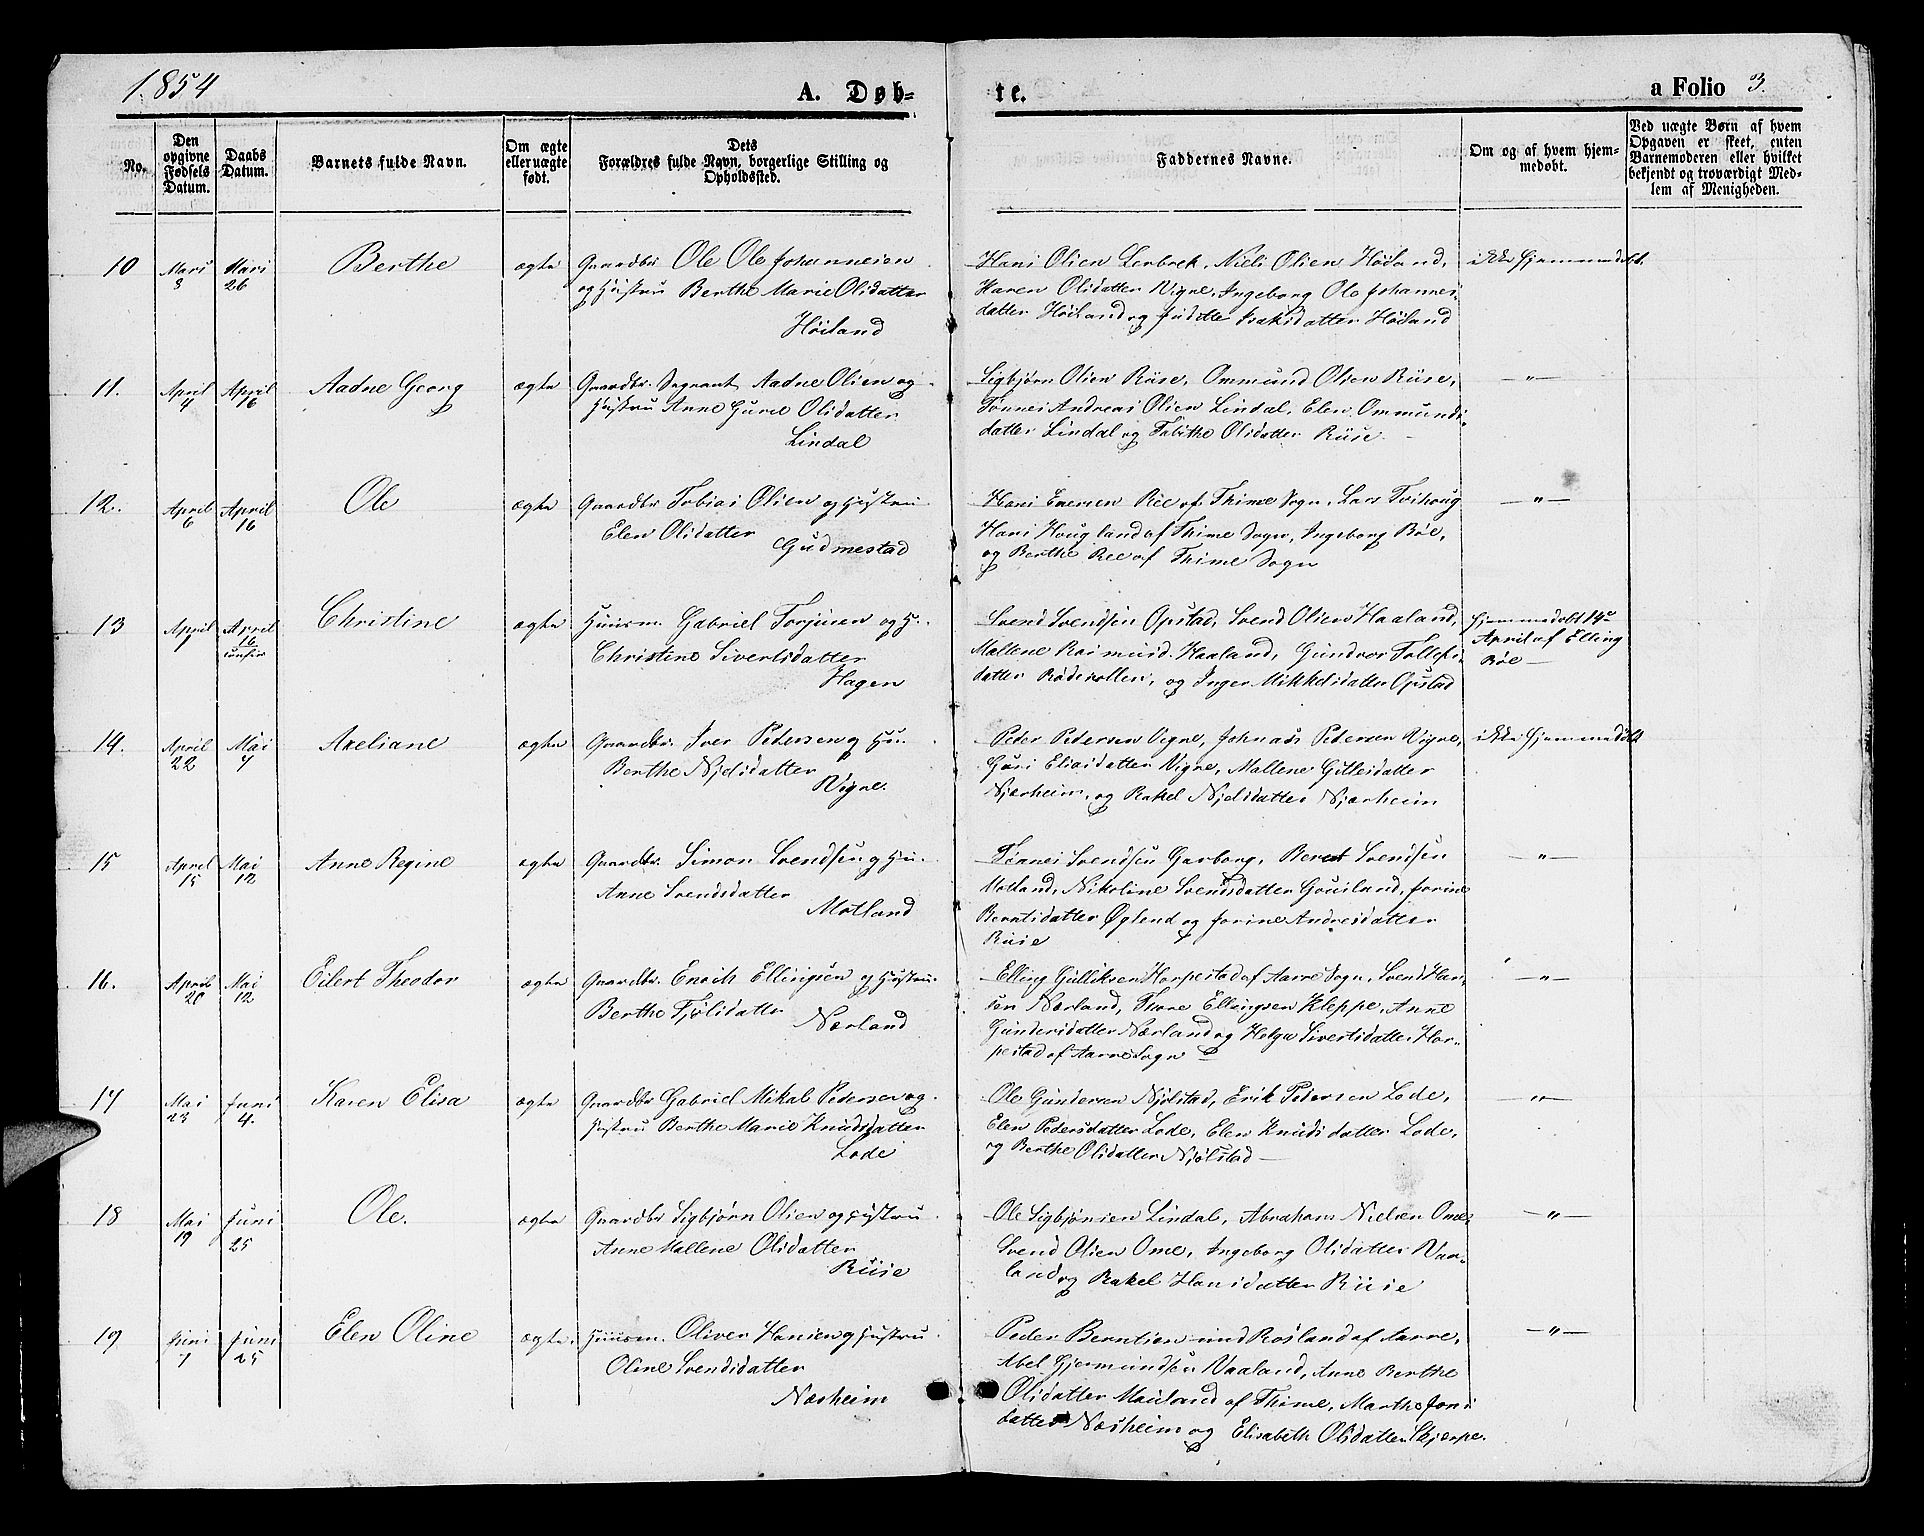 1854
A. Døb-
te.
a Folio 3.
No.
Den opgivne Fødsels Datum.
Daabs Datum.
Barnets fulde Navn.
Om ægte eller uægte født.
Dets Forældres fulde Navn, borgerlige Stilling og Opholdssted.
Faddernes Navne.
Om og af hvem hjemmedøbt.
Ved uægte Børn af hvem Opgaven er skeet, enten Barnemoderen eller hvilket bekjendt og troværdigt Medlem af Menigheden.
10 Mars 3 Mars 26 Berthe ægte Gaardbr Ole Ole Johannesen
og Hustru Berthe Marie Olsdatter
Høiland
Hans Olsen Lerbrek, Niels Olsen Høiland,
Karen Olsdatter Vigre, Ingeborg Ole Johannes-
datter Høiland og Judithe Isaksdatter Høiland
ikke hjemmedøbt.
11. April 4 April 16 Aadne Georg ægte Gaardbr. Sergeant Aadne Olsen og
Hustru Anne Gurie Olsdatter
Lindal
Sigbjørn Olsen Riise, Ommund Olsen Riise,
Tønnes Andreas Olsen Lindal, Elen Ommunds-
datter Lindal og Tabithe Olsdatter Riise.
— " —
12. April 6 April 16 Ole ægte Gaardbr Tobias Olsen og Hustru
Elen Olsdatter
Gudmestad
Hans Enersen Ree af Thime Sogn, Lars Tvihoug
Hans Hougland af Thime Sogn, Ingeborg Bøe,
og Berthe Ree af Thime Sogn
— " —
13 April April 16 Christine ægte Huusm. Gabriel Torjusen og H.
Christine Sivertsdatter
Hagen
Svend Svendsen Opstad, Svend Olsen Haaland,
Mallene Rasmusd. Haaland, Gundvor Tollefs-
datter Rødevollen, og Inger Mikkelsdatter Opstad
Hjemmedøbt 14de
April af Elling
Bøe —
14. April 22 Mai 7 Axeliane ægte Gaardbr. Iver Pedersen og Hu.
Berthe Njelsdatter
Vigre.
Peder Pedersen Vigre, Johnads Pedersen Vigre,
Guri Eliasdatter Vigre, Mallene Gitlesdatter
Njærheim, og Rakel Njelsdatter Njærheim
ikke hjemmedøbt
15 April 15 Mai 12 Anne Regine ægte Gaardbr. Simon Svendsen og Hu.
Anne Svendsdatter
Motland
Tønnes Svendsen Garborg, Bernt Svendsen
Motland, Nikoline Svendsdatter Gousland, Jorine
Berntsdatter Øglend og Jorine Andresdatter
Riise
— " —
16. April 20 Mai 12 Eilert Theodor ægte Gaardbr. Enoch Ellingsen og Hustru
Berthe Fjølsdatter
Nærland
Elling Gulliksen Horpestad af Aarre Sogn, Svend Han-
sen Nærland, Thore Ellingsen Kleppe, Anne
Gundersdatter Nærland og Helga Sivertsdatter Hor-
pestad af Aarre Sogn
— " —
17 Mai 23 Juni 4. Karen Elisa ægte Gaardbr Gabriel Mikal Pedersen og
Hustru Berthe Marie Knudsdatter
Lode
Ole Gundersen Njølstad, Erik Pedersen Lode,
Elen Pedersdatter Lode, Elen Knudsdatter Lode,
og Berthe Olsdatter Njølstad —
— " —
18 Mai 19 Juni 25 Ole. ægte Gaardbr Sigbjørn Olsen og Hustru
Anne Mallene Olsdatter
Riise
Ole Sigbjønsen Lindal, Abraham Nielsen Ome
Svend Olsen Ome, Ingeborg Olsdatter Vaa-
land og Rakel Hansdatter Riise
— " —
19 Juni 7 Juni 25 Elen Oline ægte Huusm. Oliver Hansen og Hustru
Oline Svendsdatter
Næsheim
Peder Berntsen und Rosland af Aarre,
Abel Gjermundsen Vaaland, Anne Berthe
Olsdatter Mauland af Thime, Marthe Jons
datter Næsheim og Elisabeth Olsdatter Skjærpe.
— " —